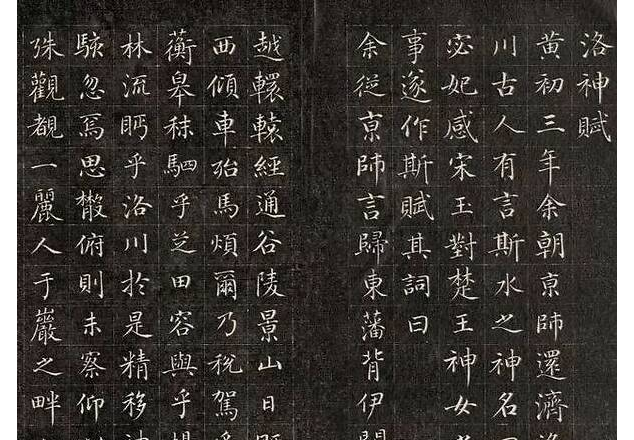 洛神賦
黄初三年余朝京師還濟洛
川古人有言斯水之神名
宓妃感宋玉對楚王神女
事遂作斯賦其詞曰
余從京師言歸東藩背伊闕
越轘轅經通谷陵景山日既
西傾車殆馬煩爾乃稅駕乎
蘅皋秣駟乎芝田容與乎楊
林流眄乎洛川於是精移神
駭忽焉思散俯則未察仰
殊觀覩一麗人于巖之畔